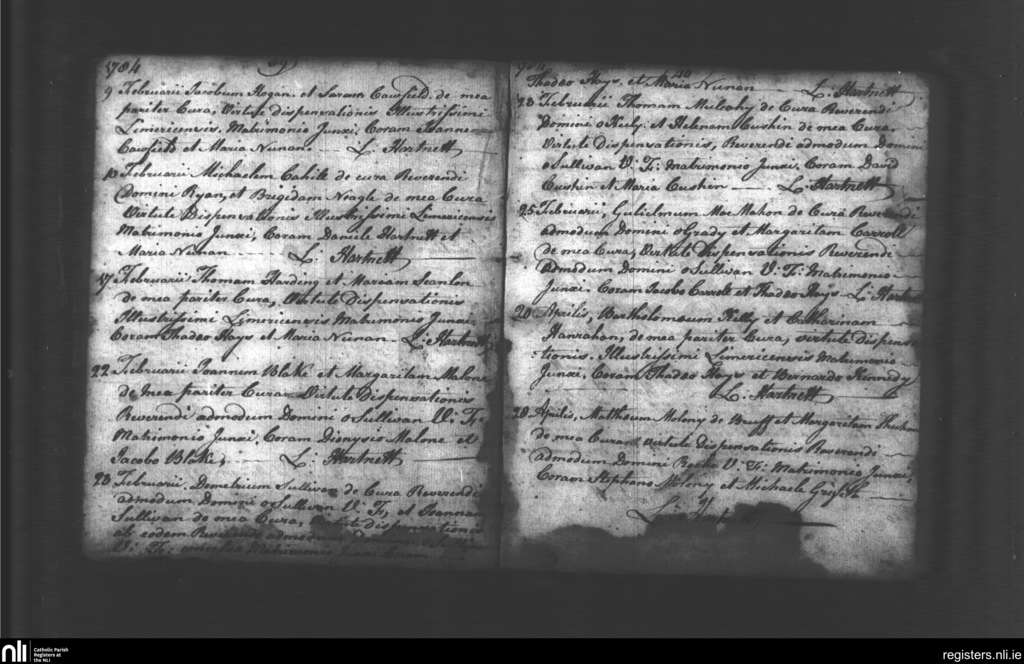 1784
39
9 Februarii Jacobum Hogan et Saram Cawfield de mea
pariter Cura, Virtute dispensationis Illustrissimi
Limericensis, Matrimonio Junxi, Coram Joanne
Cawfield et Maria Nunan. L: Hartnett
10 Februarii Michaelem Cahill de cura Reverendi
Domini Ryan, et Brigidam Neagle de mea Cura
Virtute Dispensationis Illustrissimi Limericensis
Matrimonio Junxi, Coram Daniele Hartnett et
Maria Nunan L: Hartnett
17 Februarii Thomam Harding et Mariam Scanlon
de mea pariter Cura, Virtute Dispensationis
Illustrissimi Limericensis Matrimonio Junxi
Coram Thadeo Hays et Maria Nunan L: Hartnett
22 Februarii Joannum Blake et Margaritam Malone
de mea pariter Cura Virtute Dispensationis
Reverendi admodum Domini o Sullivan V: F:
Matrimonio Junxi, Coram Dionysio Malone et
Jacobo Blake; L: Hartnett
23 Februarii, Demetrium Sullivan de Cura Reverendi
admodum Domini o Sullivan V: F, et Joannam
Sullivan de mea Cura, Virtute dispensationis
ab eodem Reverendo admodum
V: F: Matrimonio Junxi Coram
40
Thadeo Hays, et Maria Nunan L: Hartnett
23 Februarii Thomam Mulcahy de Cura Reverendi
Domini o Kily. et Helenam Cushin de mea Cura,
Virtute Dispensationis, Reverendi admodum Domini
o Sullivan V: F: Matrimonio Junxi, Coram David
Cushin et Maria Cushin L: Hartnett
25 Februarii, Gulielmum Mac Mahon de Cura Reverendi
admodum Domini o Grady et Margaritam Carroll
de mea Cura, Virtute Dispensationis Reverendi
admodum Domini o Sullivan V: F: Matrimonio
Junxi. Coram Jacobo Carroll et Thadeo Hays L: Hartnett
20 Aprilis, Bartholomæum Kelly et Catharinam
Hanrahan, de mea pariter Cura, virtute dispensa
tionis. Illustrissimi Limericensis Matrimonio
Junxi, Coram Thadeo Hays et Bernardo Kennedy
L. Hartnett
28 Aprilis, Matheum Melony de Bruff et Margaritam
de mea Cura virtute dispensationis Reverendi
admodum Domini Roche V: F: Matrimonio Junxi,
Coram Stephano Melony et Michaele Griffith
L:
nli Catholic Parish
Registers at
the NLI
registers.nli.ie